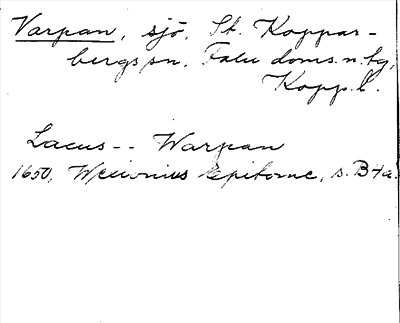 Varpan, sjö, St. Koppar-
bergs sn, Falu doms.n. tg,
Kopp. l.
Lacus -- Warpan
1650, Wexionius Epitome, s. B4a.